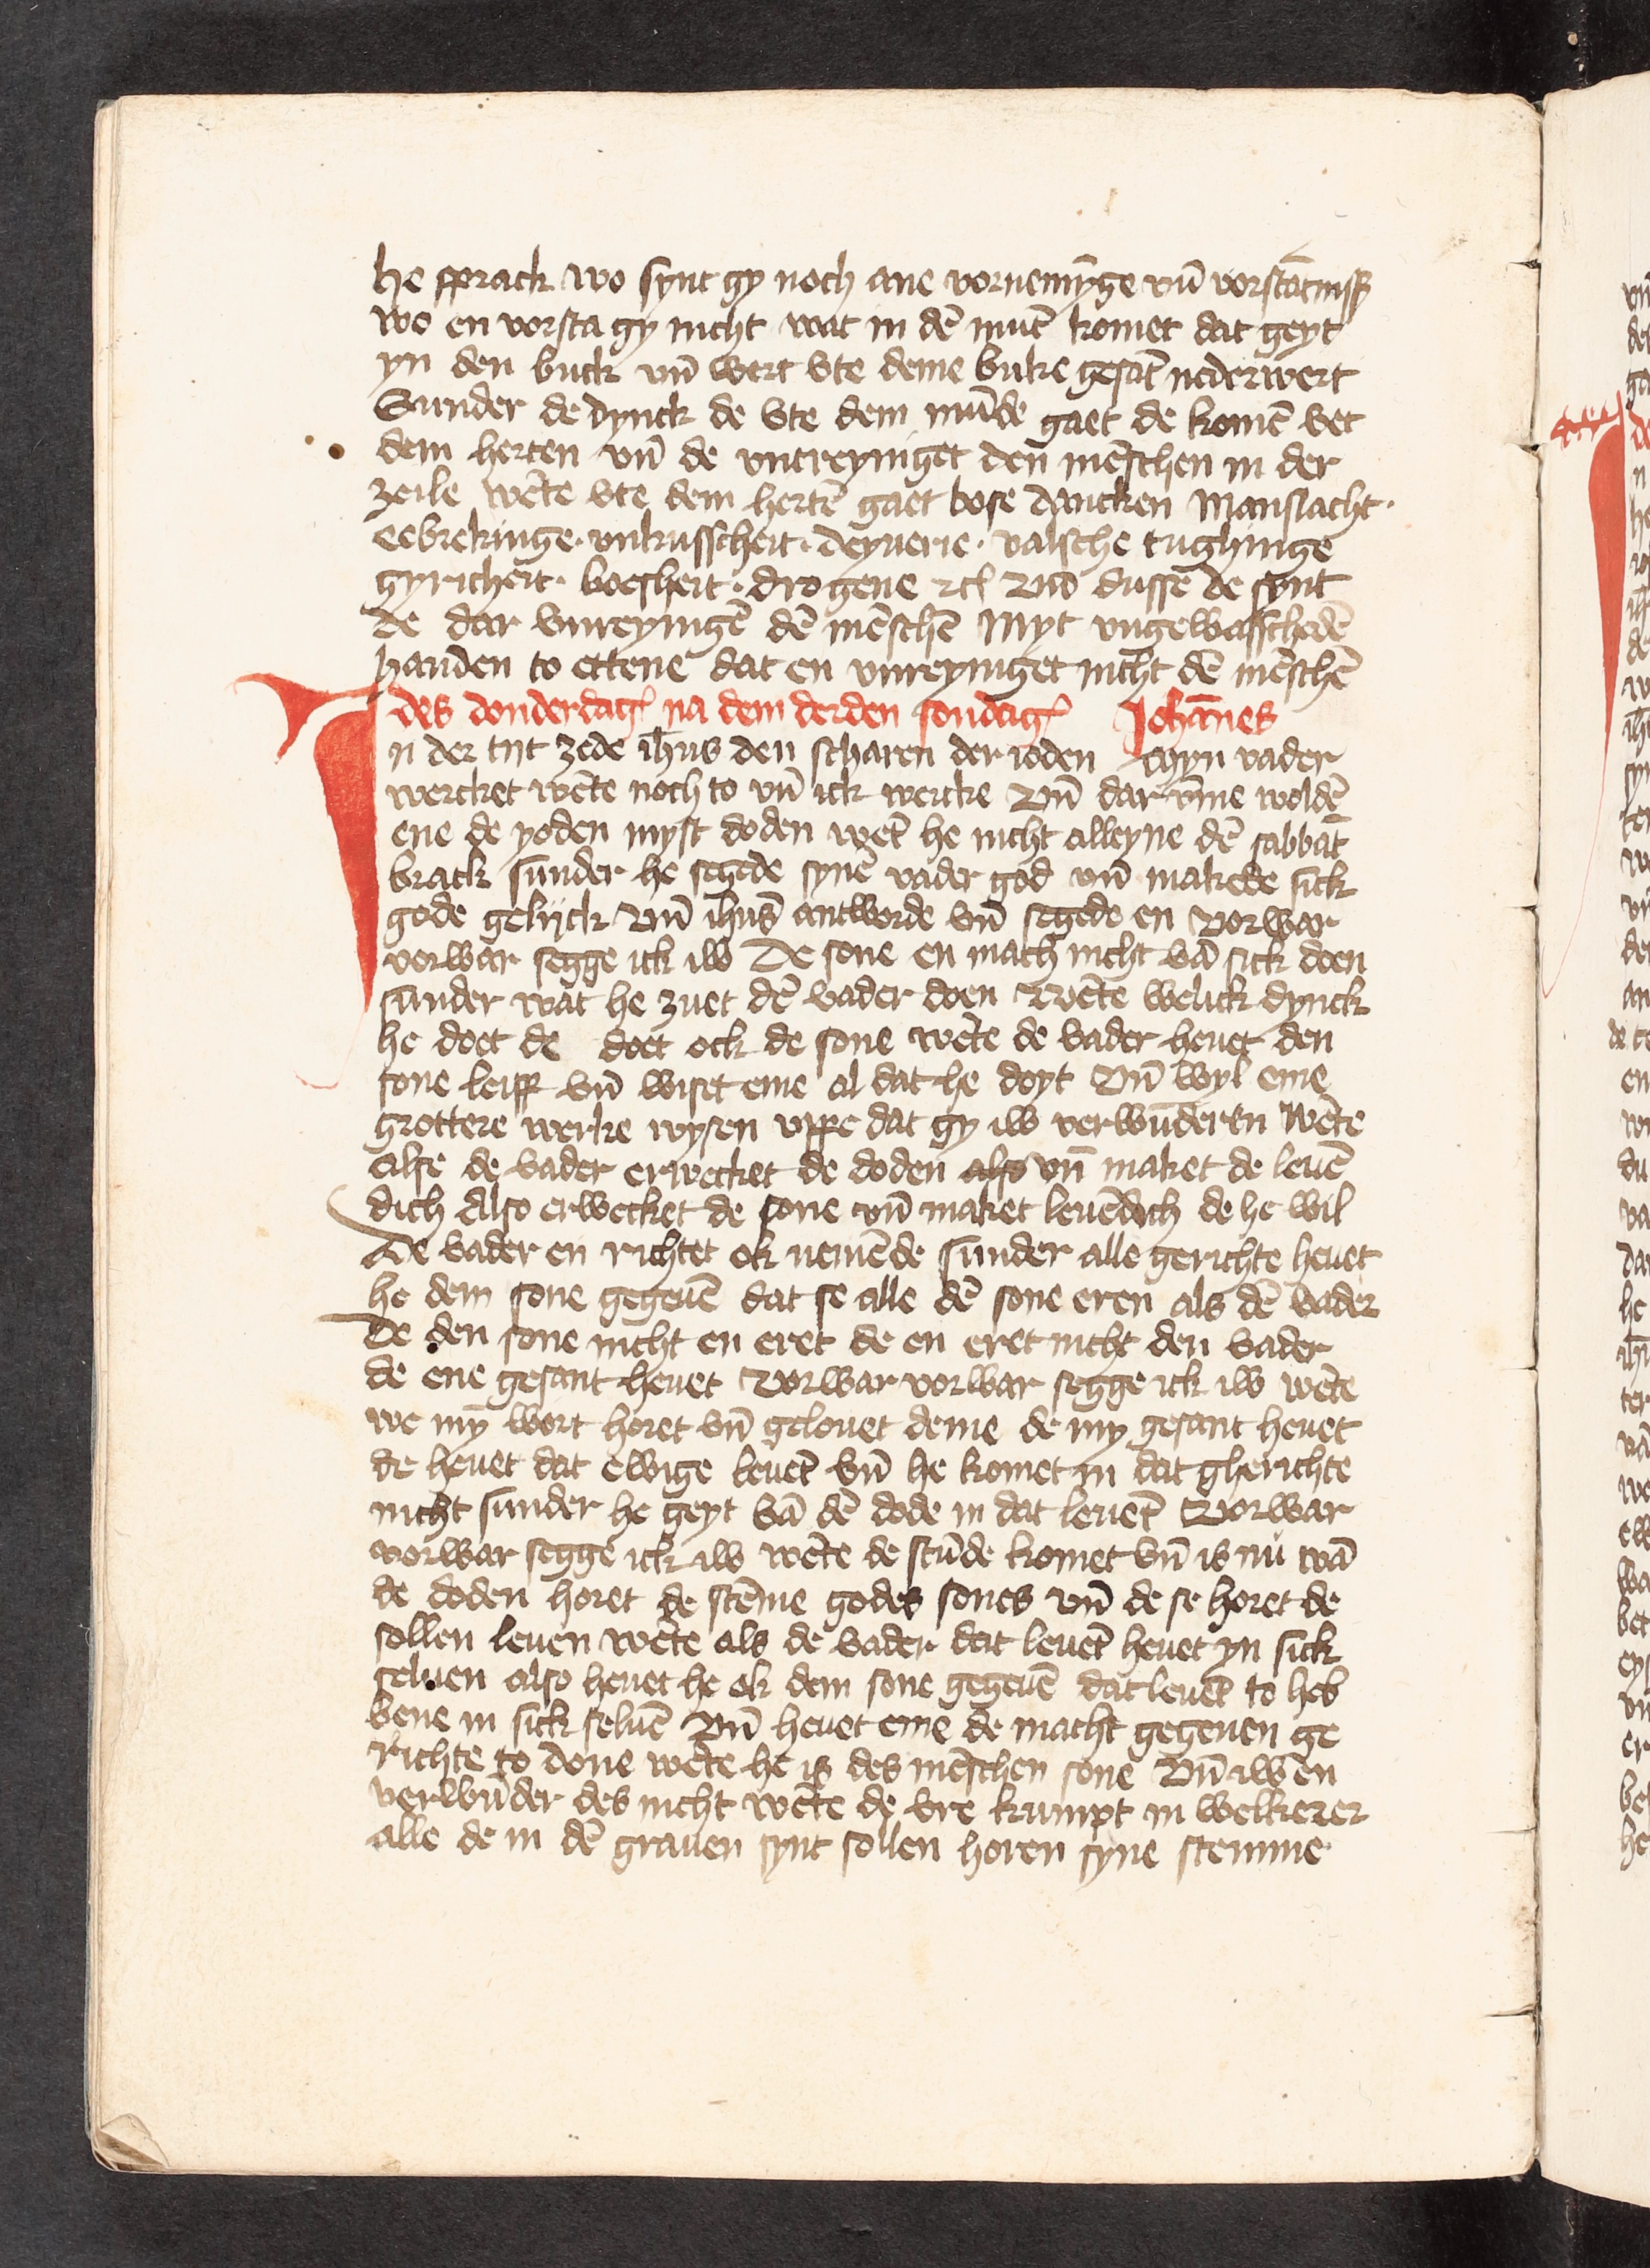 he sprack wo synt gy noch ane vornemȳge vn̄ vorstātnisse
wo en vorsta gy nicht wat in dē mūt komet dat geyt
yn den buck vn̄ wert vte deme buke gesāt nederwert
Sunder de dynck de vte dem mūde gaet de komē vet
dem herten vn̄ de vntreyniget den mēschen in der
zeile wēte vte dem hertē gaet bose dancken Manslacht·
eebrekinge· vnkusscheit· deyuerie· valsche tughinge
gyricheit· boesheit· drogene ⁊cͭ Vn̄ dusse de synt
de dar vnreyingē dē mēschē Myt vngewasschedē
handen to ettene dat en vnreyniget nicht dē mēschē
des donderdages na dem derden sondages Johānes
In der tijt zede ih̄us den scharen der ioden Myn vader
wercket wēte noch to vn̄ ick wercke Vn̄ dar v̄me woldē
ene de yoden myst doden wēt he nicht alleyne dē sabbāt
brack sunder he segede synē vader god vn̄ makede sick
gode gelijck Vn̄ ih̄us antworde vn̄ segede en Vorwar
vorwar segge ick iw De sone en mach nicht vā sick doen
sunder wat he zuet dē vader doen Wēte welick dynck
he doet de doet ock de sone wēte de vader heuet den
sone leiff vn̄ wiset eme al dat he doyt Vn̄ wyl eme
grottere werke wysen vppe dat gy iw verwūderen Wēte
alse de vader erwecket de doden also vn̄ maket de leuē
dich Also erwecket de sone vn̄ maket leuēdich de he wil
De vader en richtet ok nemēde sunder alle gerichte heuet
he dem sone gegeuē dat se alle dē sone eren als dē vader
De den sone nicht en eret de en eret nicht den vader
de ene gesant heuet Vorwar vorwar segge ick iw wēte
we mȳ wort horet vn̄ gelouet deme de my gesant heuet
de heuet dat ewige leuēt vn̄ he komet in dat gherichte
nicht sunder he geyt vā dē dode in dat leuēt Vorwar
vorwar segge ick iw wēte de stūde komet vn̄ is nu wā
de doden horet de stēme godes sones vn̄ de se horet de
sollen leuen wēte als de vader dat leuēt heuet yn sick
seluen also heuet he ok dem sone gegeuē dat leuēt to heb
bene in sick seluē Vn̄ heuet eme de macht gegeuen ge
richte to done wēte he is des mēschen sone Vn̄ iw en
verwūder des nicht wēte de vre kumpt in welkerer
alle de in dē grauen synt sollen horen syne stemme